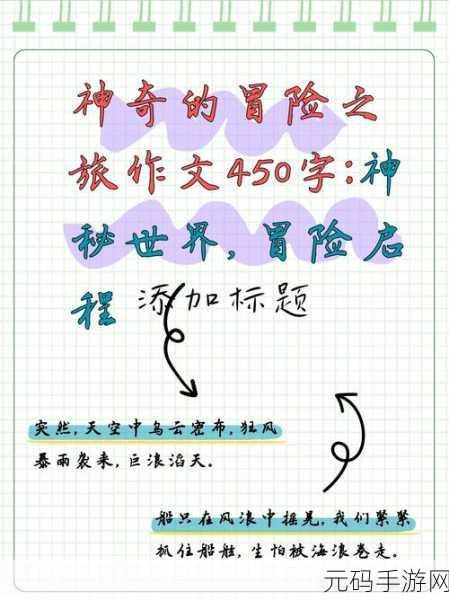 神奇的冒险之
旅作文450字:神
秘世界,冒险启
程
添加标题
突然,天空中乌云密布,狂风
暴雨袭来,巨浪滔天。
船只在风浪中摇晃,我们紧紧
抓住船舷,生怕被海浪卷走。
元码手游网